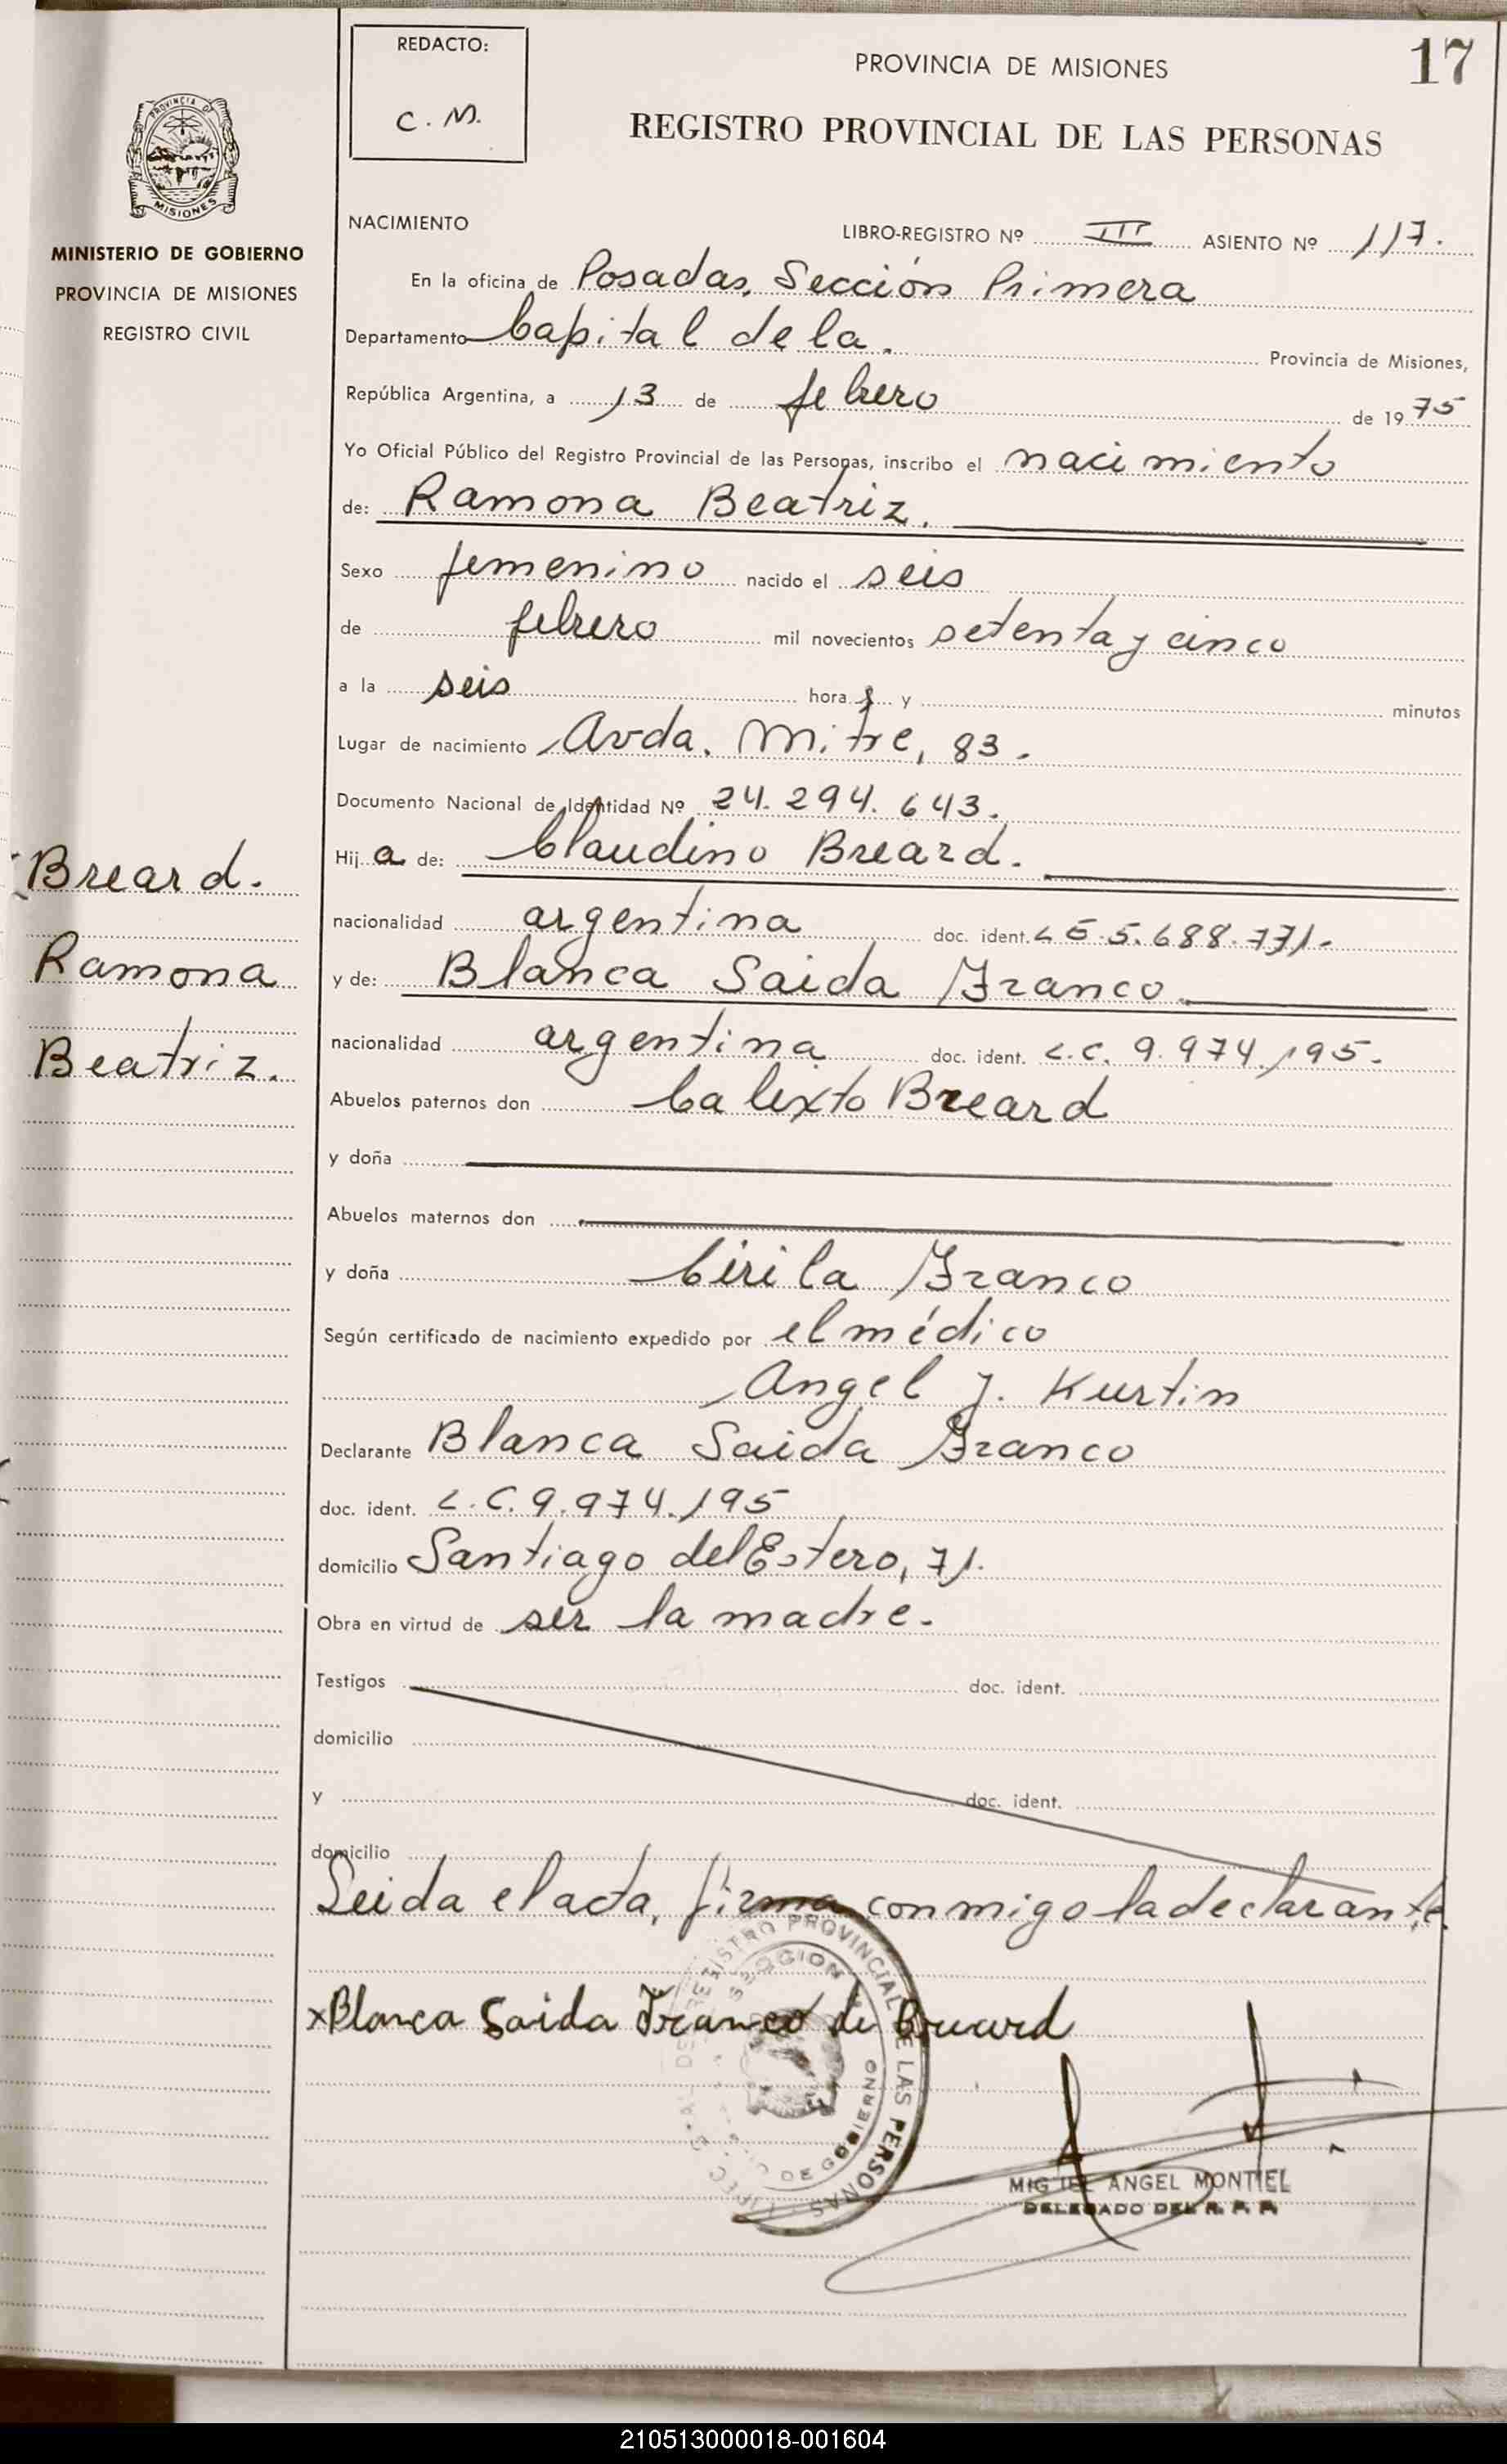 REDACTO:
C. M.
PROVINCIA DE MISIONES
17
REGISTRO PROVINCIAL DE LAS PERSONAS
PROVINCIA DE
MISIONES
MINISTERIO DE GOBIERNO
PROVINCIA DE MISIONES
REGISTRO CIVIL
NACIMIENTO
LIBRO-REGISTRO Nº III ASIENTO Nº 117.
En la oficina de Posadas, Sección Primera
Departamento Capital de la. Provincia de Misiones,
República Argentina, a 13 de febrero de 1975
Yo Oficial Público del Registro Provincial de las Personas, inscribo el nacimiento
de: Ramona Beatriz.
Sexo femenino nacido el seis
de febrero mil novecientos setenta y cinco
a la seis hora s y minutos
Lugar de nacimiento Avda. Mitre, 83.
Documento Nacional de Identidad Nº 24.294.643.
Hija de: Claudino Breard.
nacionalidad argentina doc. ident. L E 5.688.771.
y de: Blanca Saida Franco
nacionalidad argentina doc. ident. L.C. 9.974.195.
Abuelos paternos don Calixto Breard
y doña
Abuelos maternos don
y doña Cirila Franco
Según certificado de nacimiento expedido por el médico
Angel J. Kurtin
Declarante Blanca Saida Franco
doc. ident. L.C. 9.974.195
domicilio Santiago del Estero, 71.
Obra en virtud de ser la madre.
Testigos doc. ident.
domicilio
y doc. ident.
domicilio
Leida el acta, firma conmigo la declarante
x Blanca Saida Franco de Breard
REGISTRO PROVINCIAL DE LAS PERSONAS
SECCION
DE GOBIERNO
MIGUEL ANGEL MONTIEL
DELEGADO DEL R. P. P.
Breard.
Ramona
Beatriz.
210513000018-001604